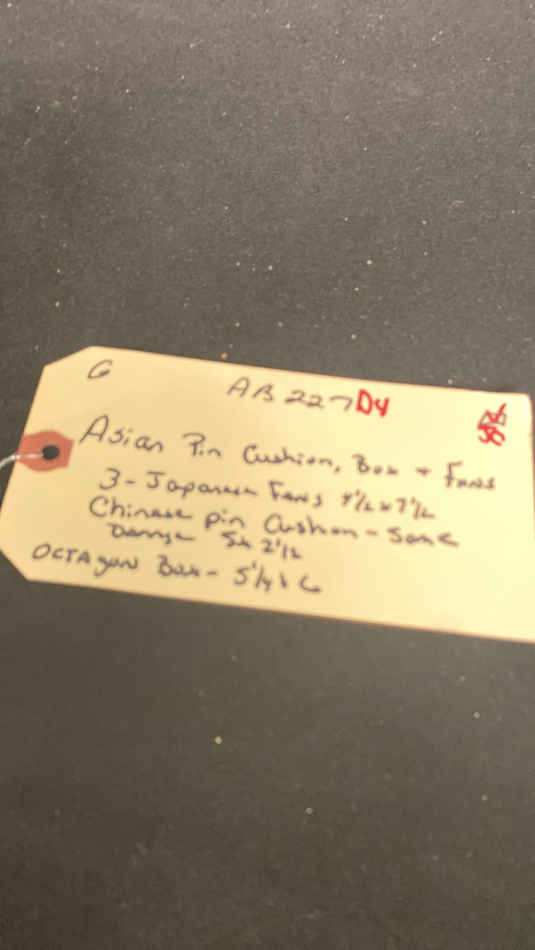 G
AB227 D4
Asian Pin Cushion, Box + Fans
3 - Japanese Fans 7½
Chinese pin Cushion - Some
Damage 5x 2½
OCTAgon Box - 5¼ x 6